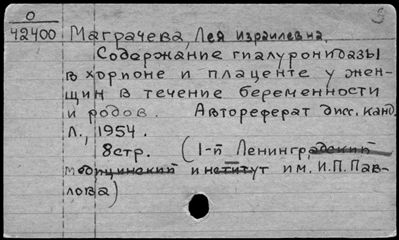 О
42400
Маграчева, Лея Израилевна.
Содержание гиалуронидазы
в хорионе и плаценте у жен-
щин в течение беременности
и родов. Автореферат дисс. канд.
Л., 1954.
8стр. (1-й Ленинградский
медицинский институт им. И.П.Пав-
лова)